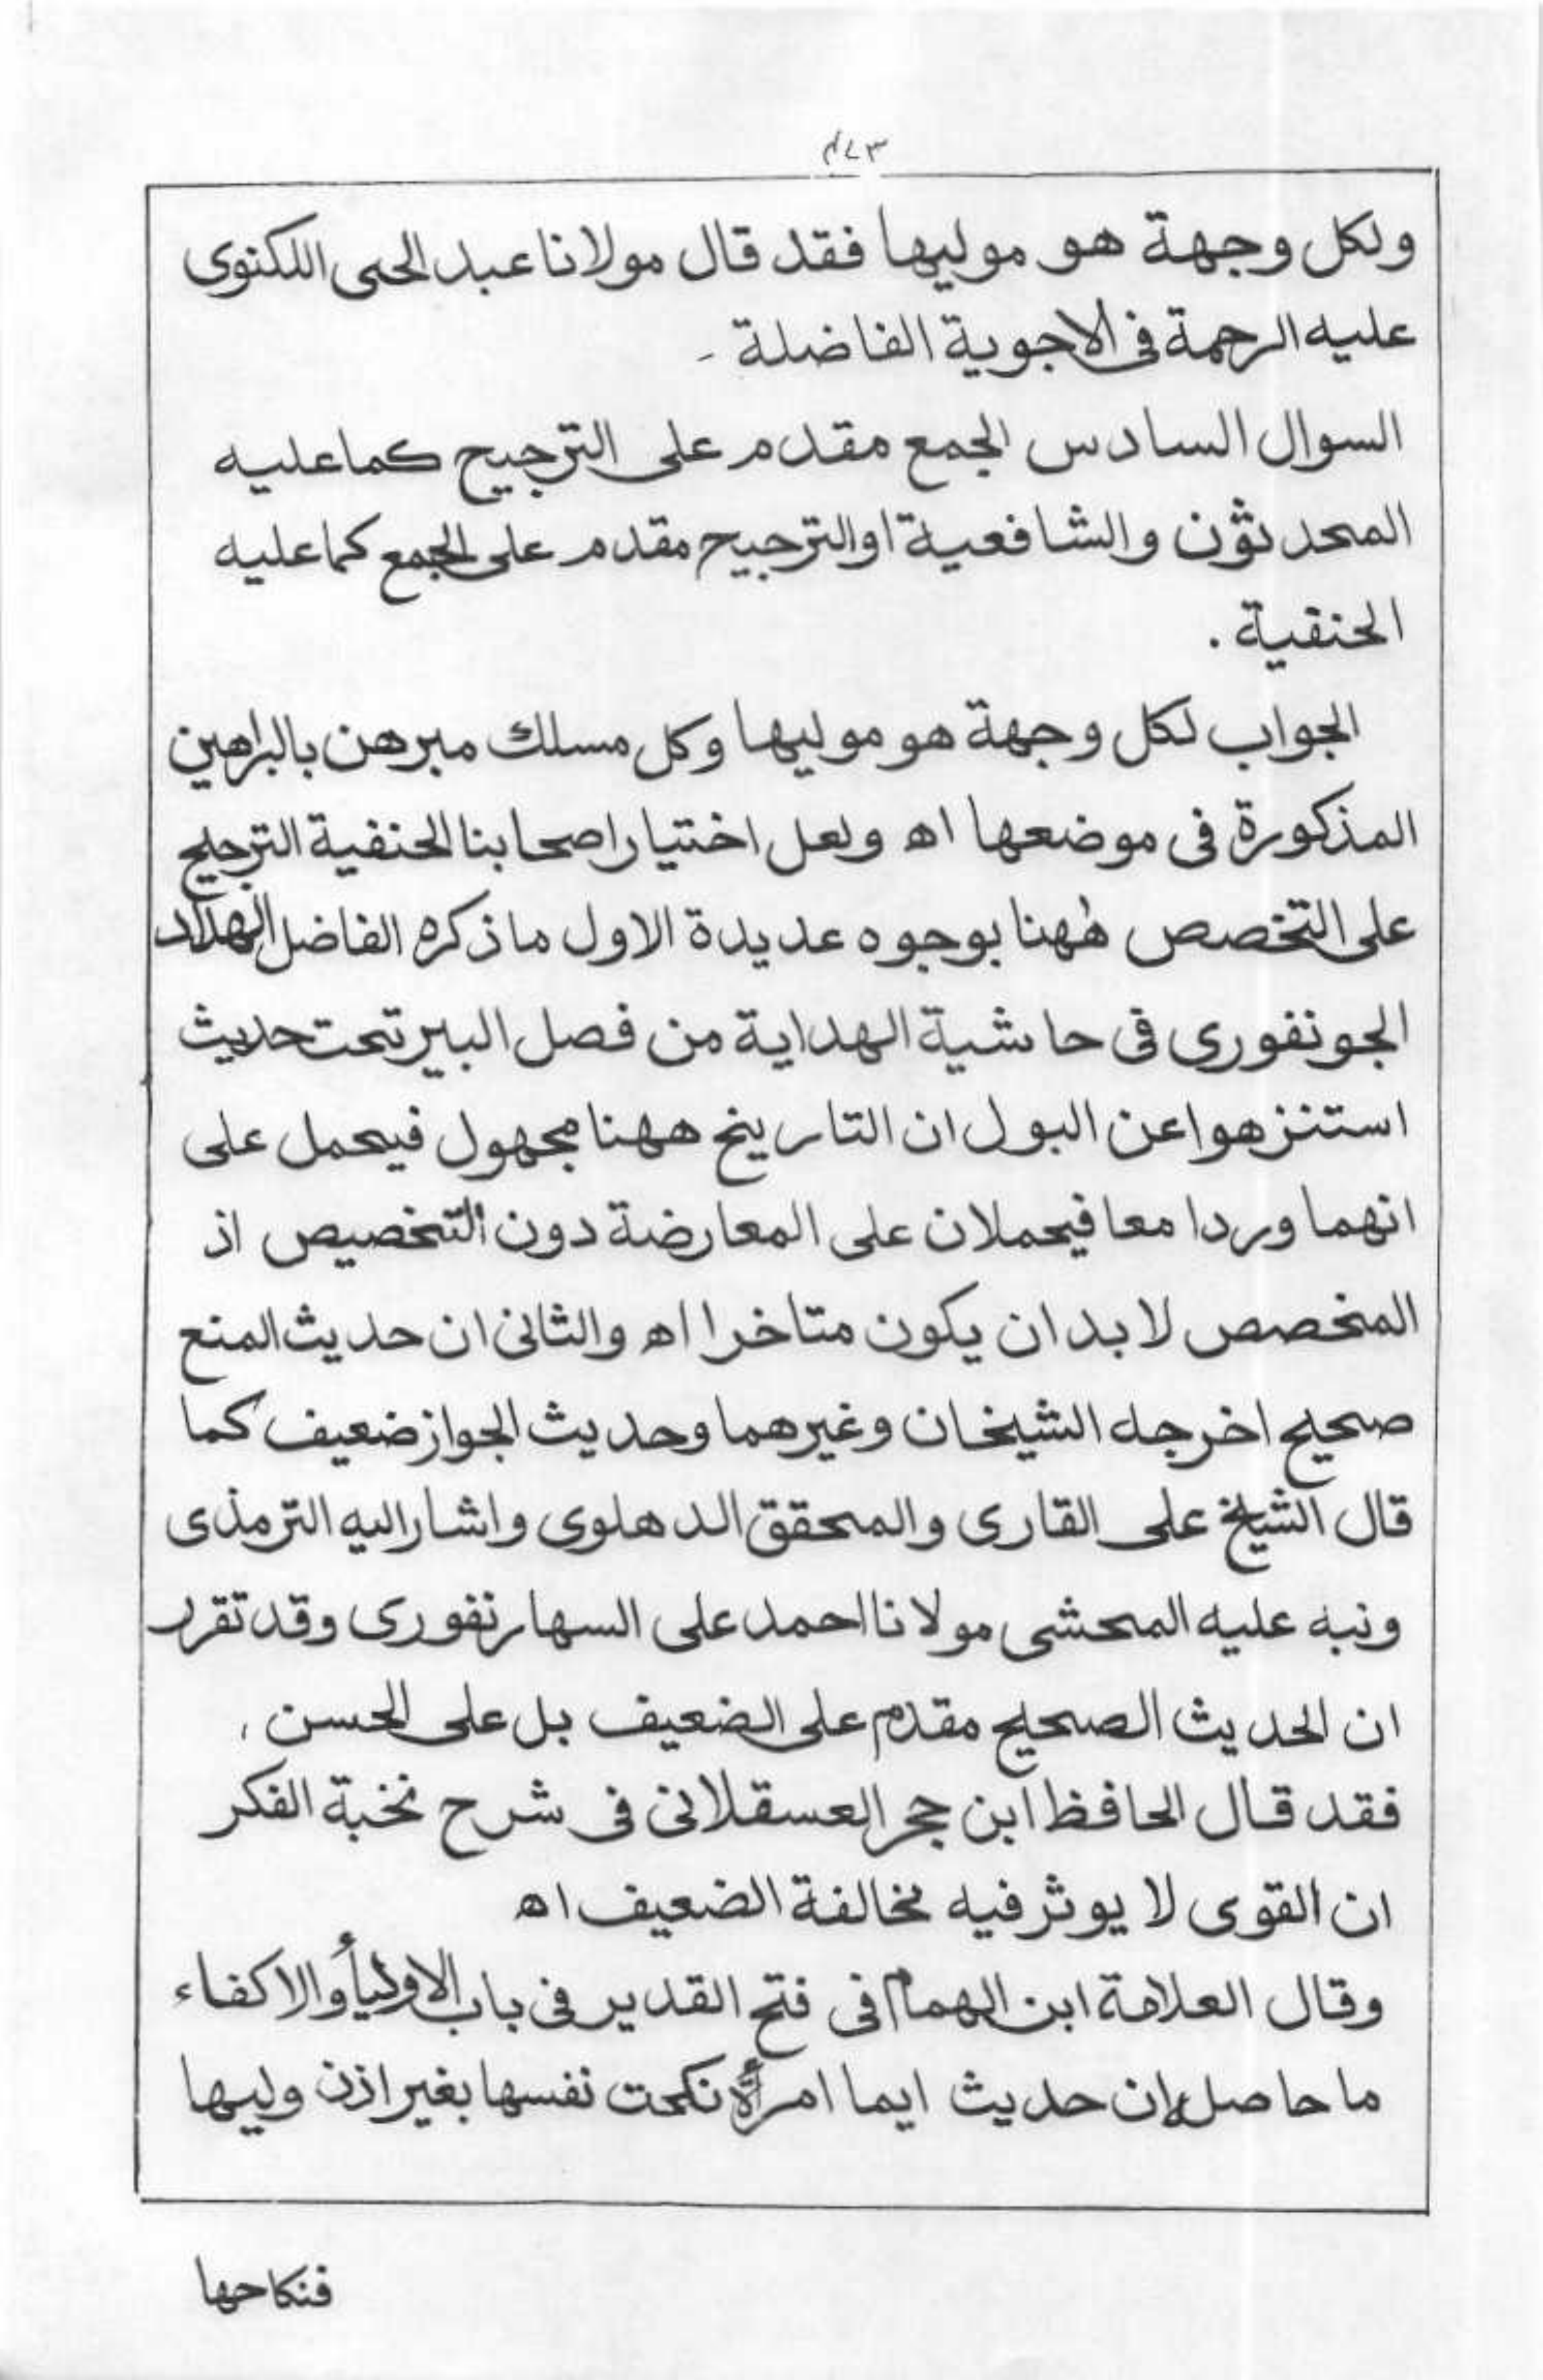 ولكل وجهة هو موليها فقد قال مولانا عبد الحى اللكنوى
عليه الرحمة فى الاجوبة الفاضلة -
السوال السادس الجمع مقدم على الترجيح كما عليه
المحدثون والشافعية او الترجيح مقدم على الجمع كما عليه
الحنفية .
الجواب لكل وجهة هو موليها وكل مسلك مبرهن بالبراهين
المذكورة فى موضعها اه ولعل اختيار اصحابنا الحنفية الترجيح
على التخصص ههنا بوجوه عديدة الاول ما ذكره الفاضل الهداد
الجونفورى فى حاشية الهداية من فصل البير تحت حديث
استنزهوا عن البول ان التاريخ ههنا مجهول فيحمل على
انهما وردا معا فيحملان على المعارضة دون التخصيص اذ
المخصص لا بد ان يكون متاخرا اه والثانى ان حديث المنع
صحيح اخرجه الشيخان وغيرهما وحديث الجواز ضعيف كما
قال الشيخ على القارى والمحقق الدهلوى واشار اليه الترمذى
ونبه عليه المحشى مولانا احمد على السهارنفورى وقد تقرر
ان الحديث الصحيح مقدم على الضعيف بل على الحسن ،
فقد قال الحافظ ابن حجر العسقلانى فى شرح نخبة الفكر
ان القوى لا يوثر فيه مخالفة الضعيف اه
وقال العلامة ابن الهمام فى فتح القدير فى باب الاولياء والاكفاء
ما حاصله ان حديث ايما امرأة نكحت نفسها بغير اذن وليها
فنكاحها